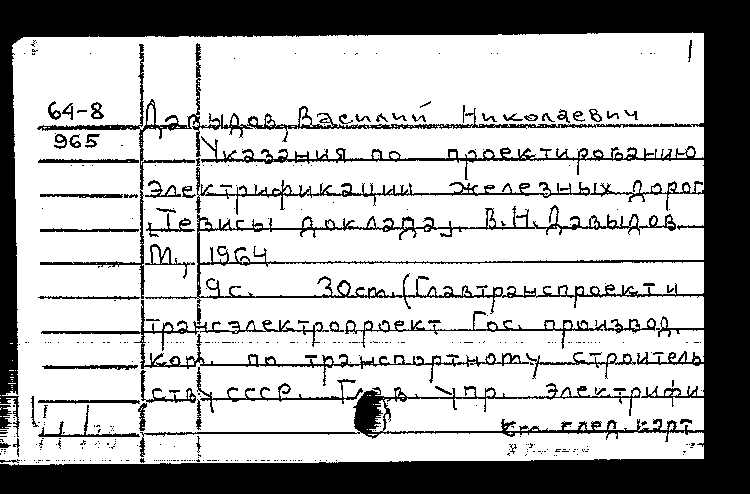 64-8
965
Давыдов, Василий Николаевич
Указания по проектированию
электрификации железных дорог
[Тезисы доклада]. В.Н. Давыдов.
М., 1964
9 с. 30 cm. (Главтранспроект и
трансэлектропроект Гос. производ.
ком. по транспортному строитель
ству СССР. Глав. упр. электрифи
см. след. карт.